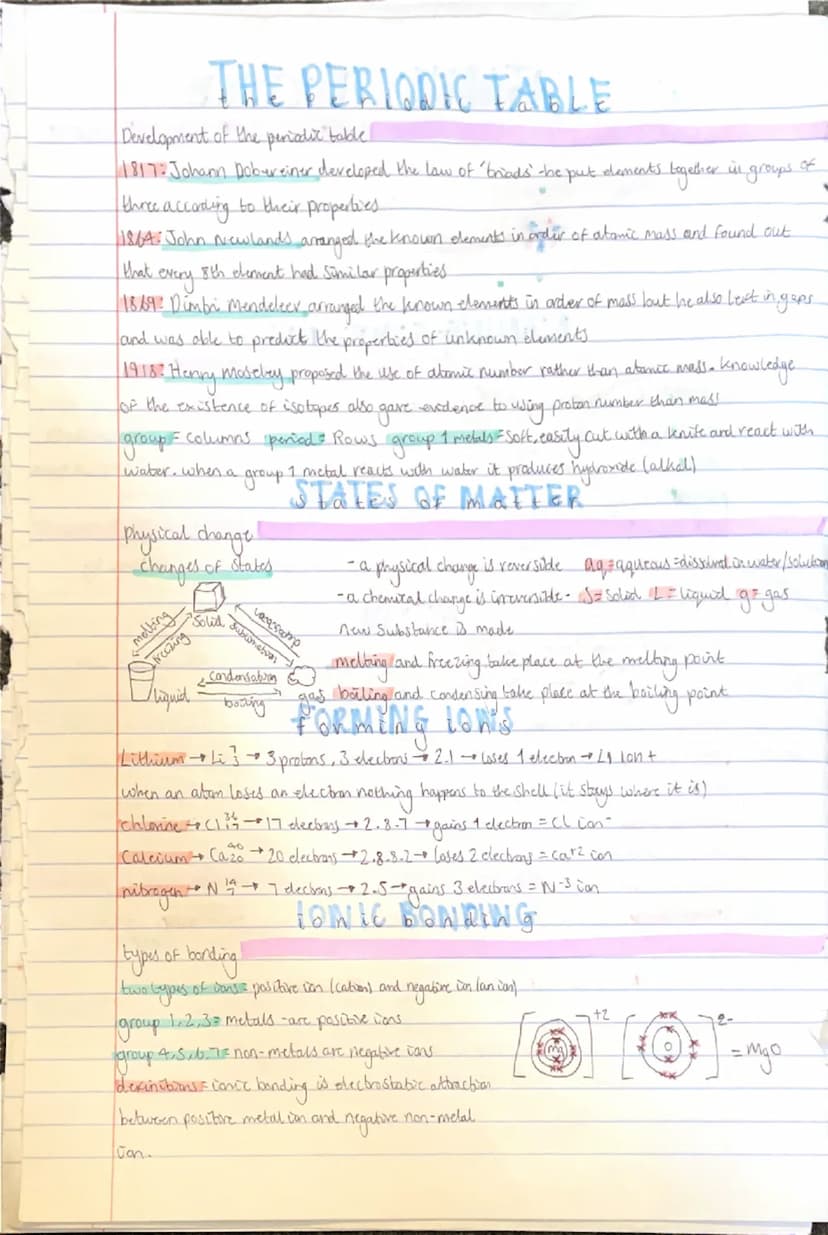 THE PERIODIC TABLE
the periodic table
Development of the periodic table
1817: Johann Dobereiner developed the law of 'triads' - he put elements together in groups of
three according to their properties
1864: John Newlands arranged the known elements in order of atomic mass and found out
that every 8th element had similar properties
1869: Dimitri Mendeleev arranged the known elements in order of mass but he also left in gaps
and was able to predict the properties of unknown elements
1918: Henry Moseley proposed the use of atomic number rather than atomic mass. knowledge
of the existence of isotopes also gave evidence to using proton number than mass
group = columns period = Rows group 1 metals = soft, easily cut with a knife and react with
water. when a group 1 metal reacts with water it produces hydroxide (alkali)
STATES OF MATTER
states of matter
physical change
changes of states
- a physical change is reversible aq = aqueous = dissolved in water/solution
- a chemical change is irreversible - S = solid L = liquid g = gas
new substance is made
solid
melting
freezing
sublimation
liquid
condensation
boiling
gas
melting and freezing take place at the melting point
boiling and condensing take place at the boiling point
FORMING IONS
forming ions
Lithium → Li 7 3 → 3 protons, 3 electrons → 2.1 → loses 1 electron → Li ion +
when an atom loses an electron nothing happens to the shell (it stays where it is)
chlorine → Cl 17 → 17 electrons → 2.8.7 → gains 1 electron = Cl ion -
Calcium → Ca 40 20 → 20 electrons → 2.8.8.2 → loses 2 electrons = Ca+2 ion
nitrogen → N 14 7 → 7 electrons → 2.5 → gains 3 electrons = N-3 ion
IONIC BONDING
ionic bonding
types of bonding
two types of ions = positive ion (cation) and negative ion (an ion)
group 1,2,3 = metals - are positive ions
group 4,5,6,7 = non-metals are negative ions
definitions = ionic bonding is electrostatic attraction
between positive metal ion and negative non-metal
ion.
[mg]+2 [O]2- = MgO